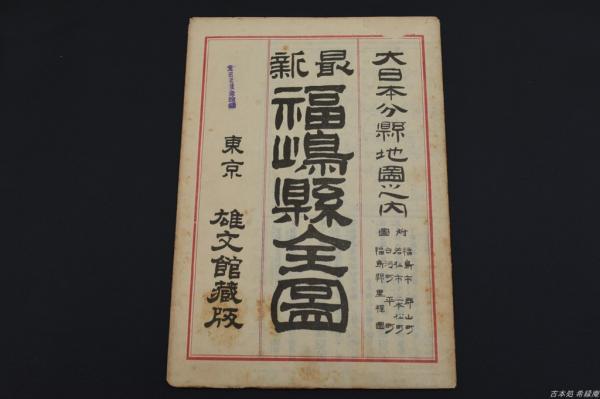 大日本分縣地圖之内
附圖
福島市 郡山町
若松市 二本松町
白河町 平町
福島縣里程圖
最新
福嶋縣全圖
東京 雄文館藏版
古本処 希縁庵